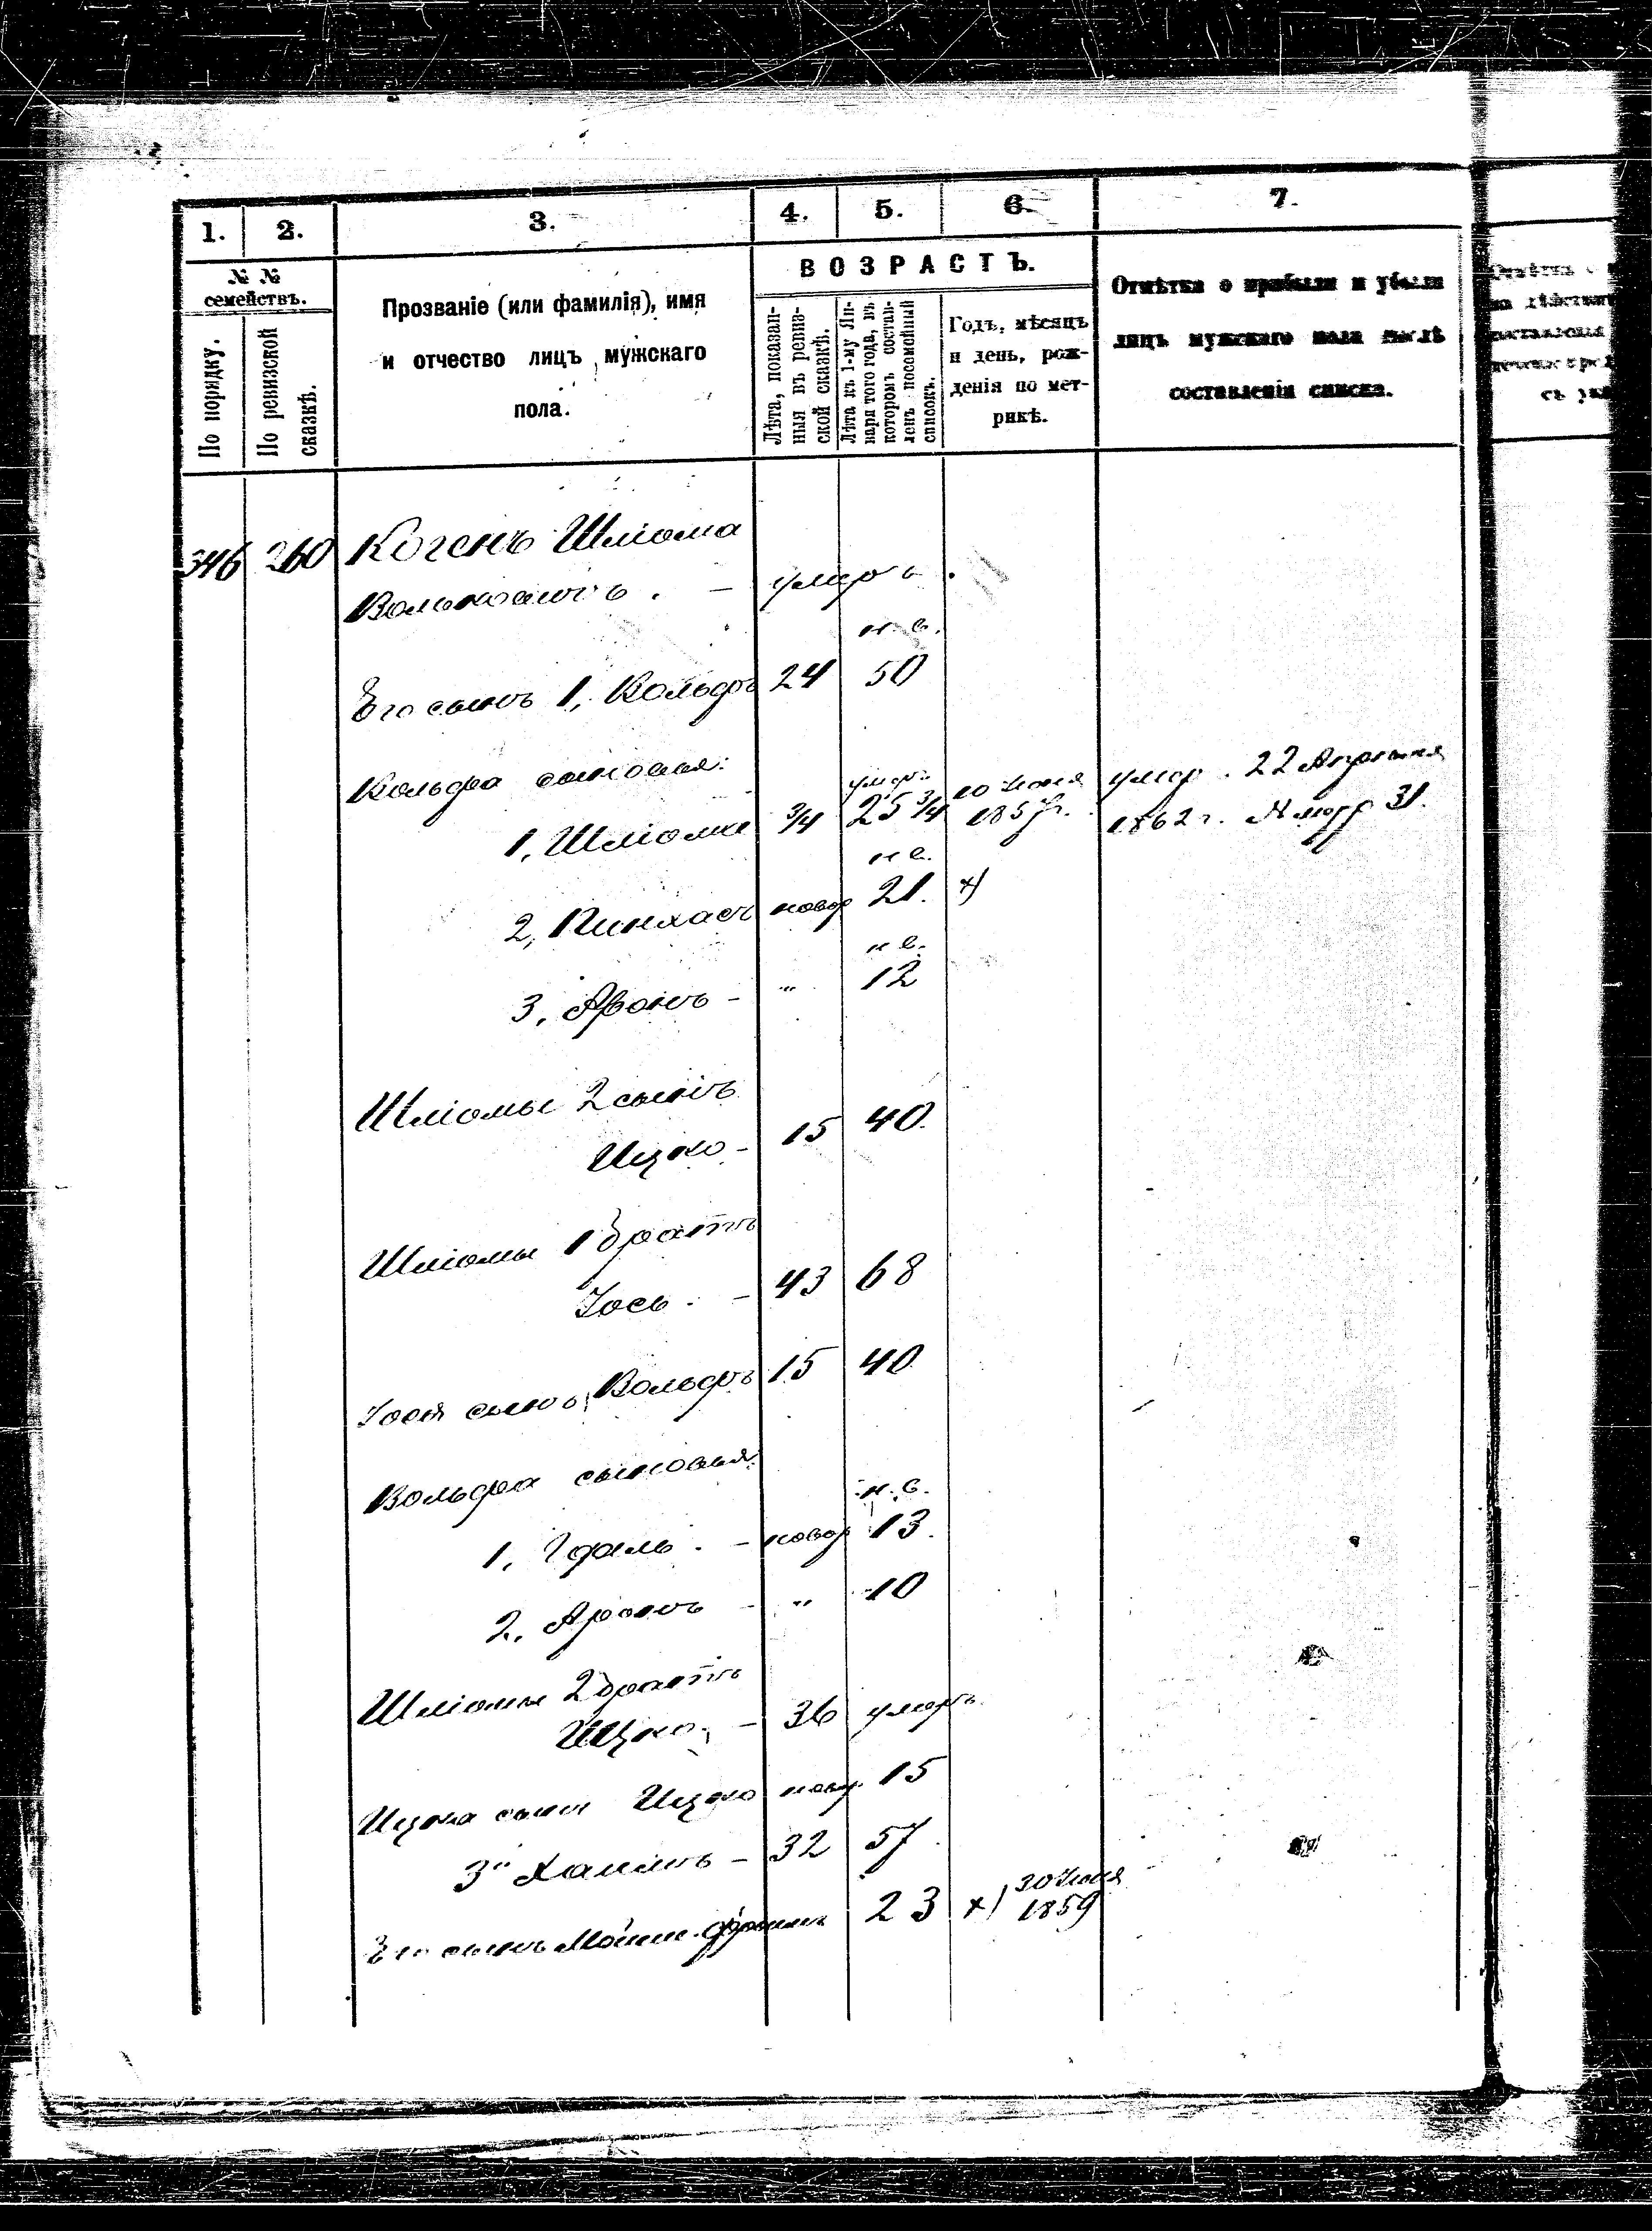 1. 2. 3. 4. 5. 6. 7.
№ №
семействъ.
По порядку.
По ревизской
сказкѣ.
Прозваніе (или фамилія), имя
и отчество лицъ мужскаго
пола.
ВОЗРАСТЪ.
Лѣта, показан-
ныя въ ревиз-
ской сказкѣ.
Лѣта къ 1-му Ян-
варя того года, въ
которомъ состав-
ленъ посемейный
списокъ.
Годъ, мѣсяцъ
и день, рож-
денія по мет-
рикѣ.
Отмѣтка о прибыли и убыли
лицъ мужскаго пола послѣ
составленія списка.
346 260 Когенъ Шліома
умеръ.
н. в.
Его сынъ 1, Вольфъ 24 50
Вольфа сыновья:
умеръ 10 Іюня умер. 22 Апрѣля
1, Шліома 3/4 25 3/4 1857г. 1862г. 31.
н в.
2, Пинхасъ новор 21. х)
н в.
3, Аронъ - " 12
Шліомы 2 сынъ
Ицко - 15 40.
Шліомы 1 братъ
Іось. - 43 68
Іося сынъ Вольфъ 15 40
Вольфа сыновья:
н. в.
1, Гдаль. - новор 13.
2, Аронъ - " 10
Шліомы 2 братъ
Ицко. - 36 умеръ.
Ицка сынъ Ицко новор. 15
3й Хаимъ - 32 57
30 Іюня
Его сынъ Мошко-Фроимъ 23 х) 1859